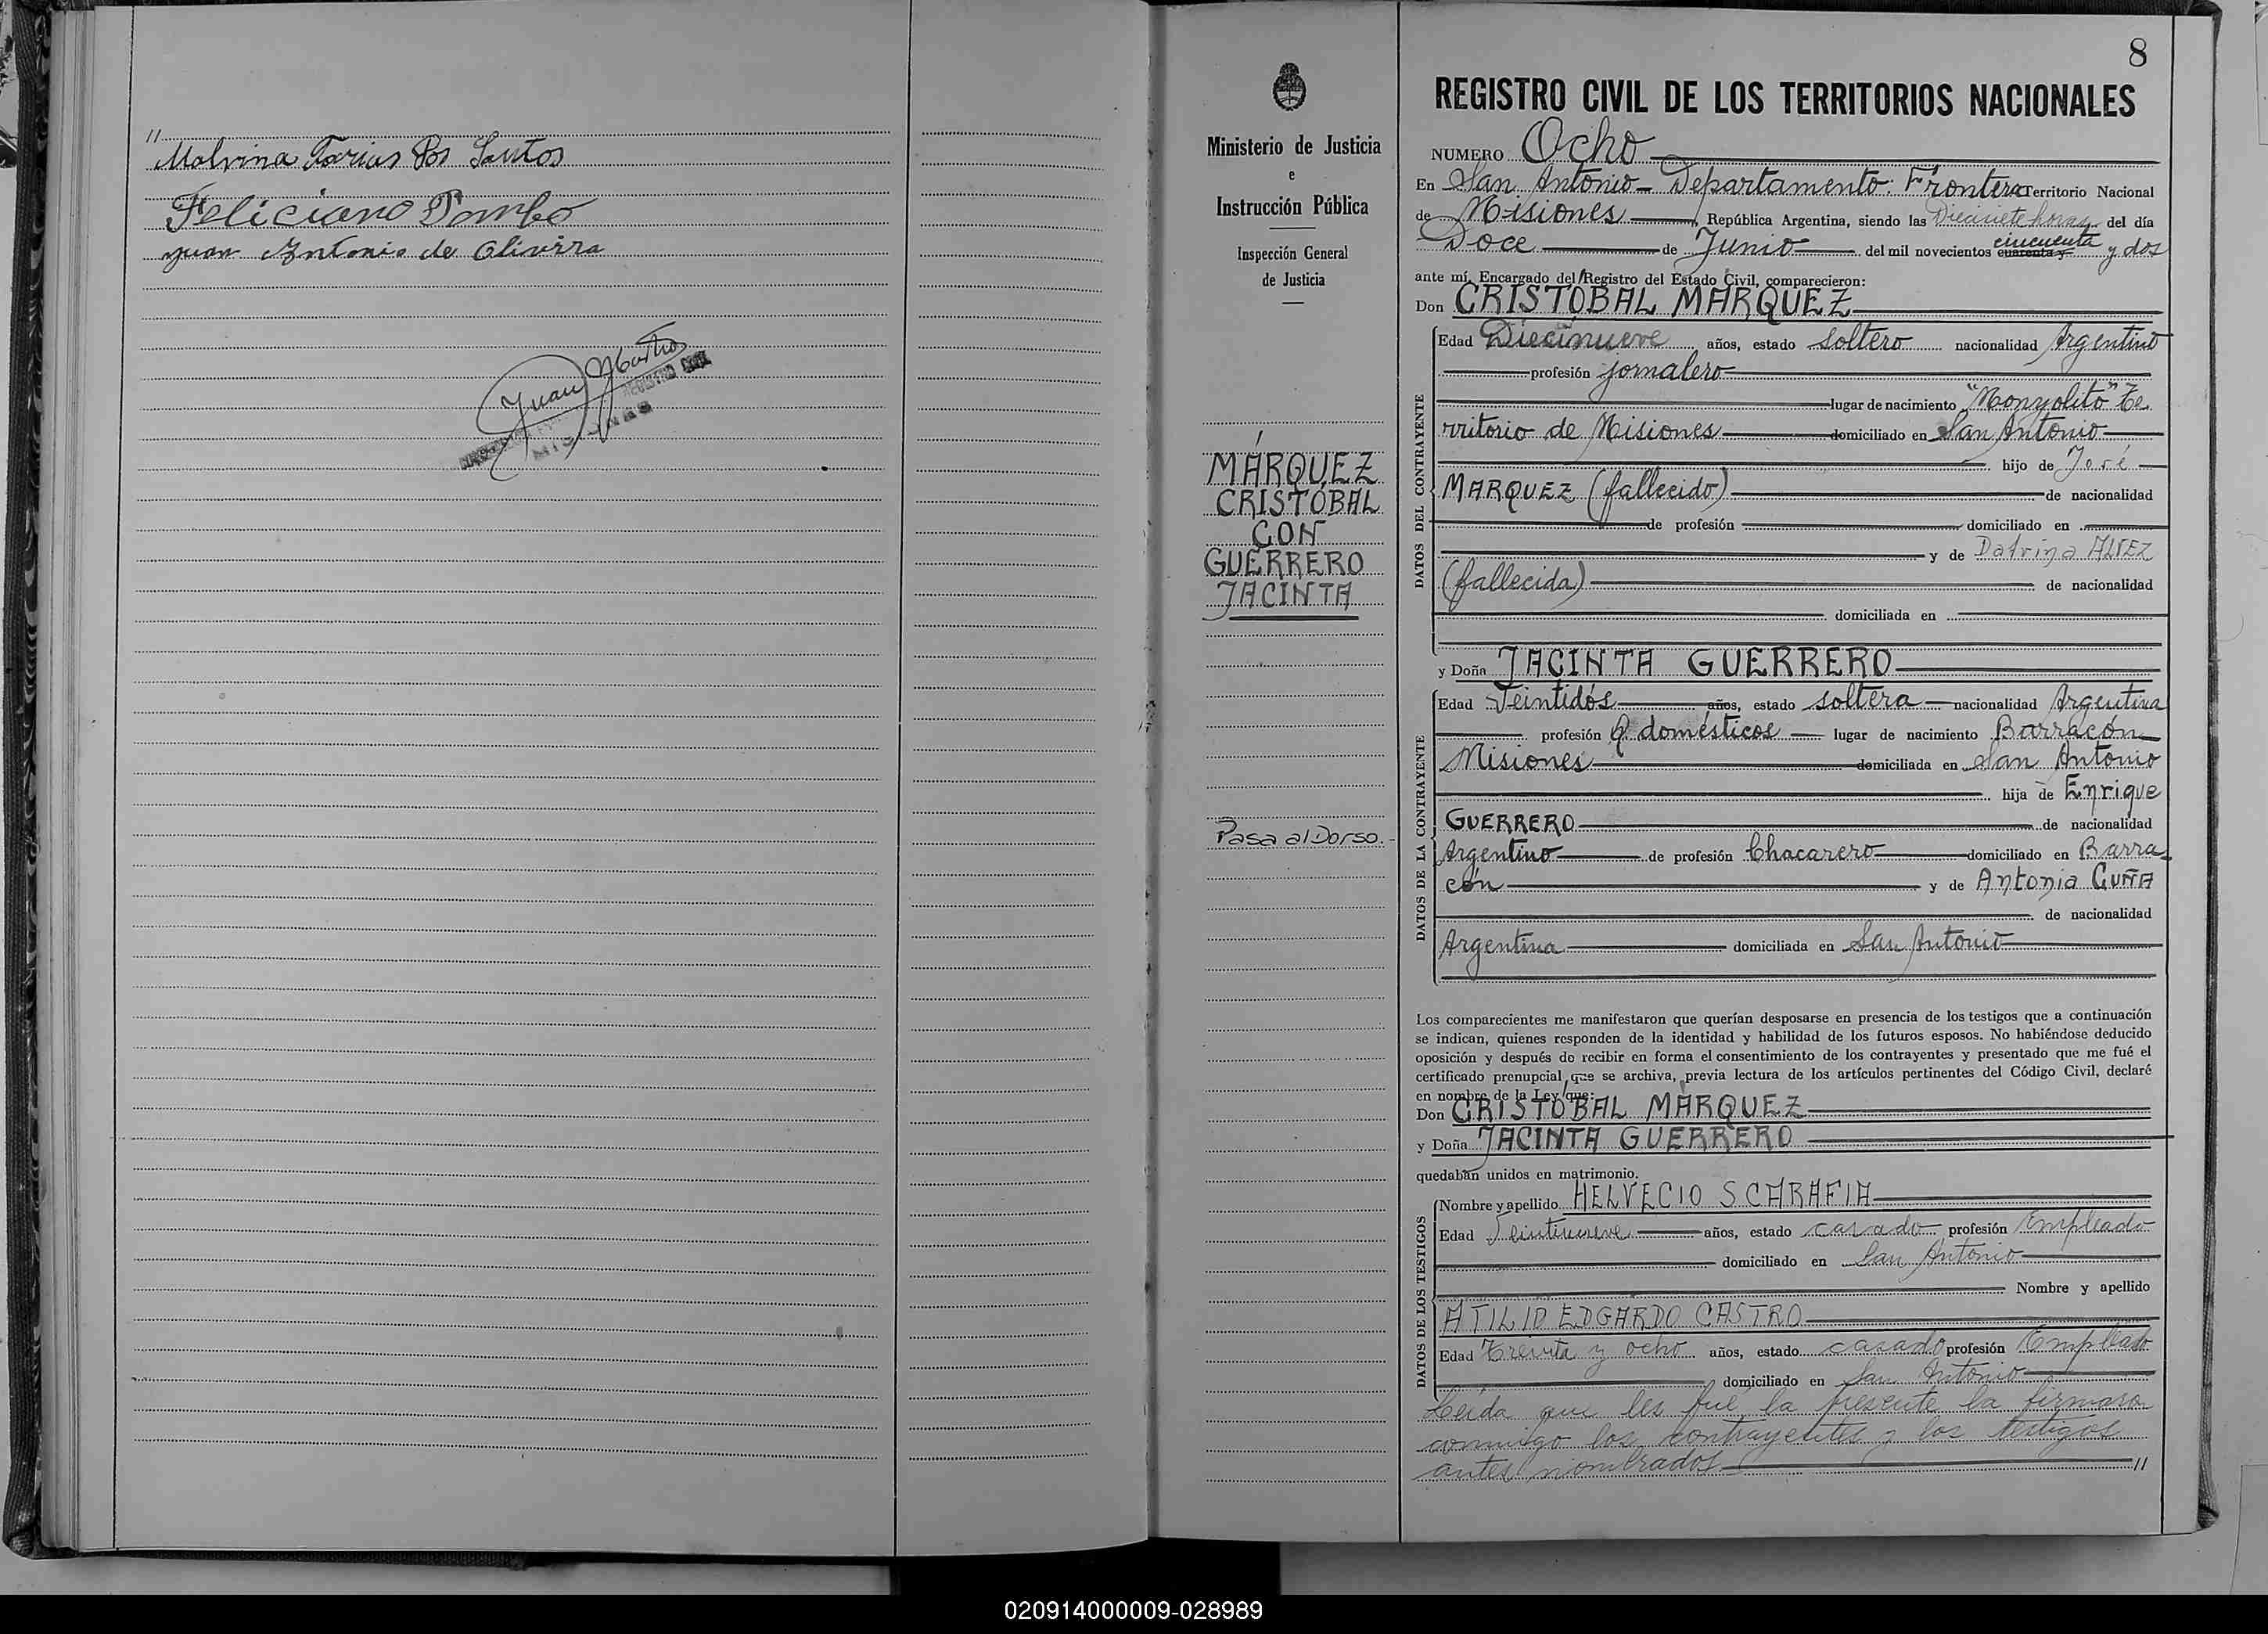 //
Malvina Farias Dos Santos
Feliciano Pombo
Juan Antonio de Olivira
Juan
REGISTRO CIVIL
MISIONES
Ministerio de Justicia
e
Instrucción Pública
Inspección General
de Justicia
MÁRQUEZ
CRISTÓBAL
CON
GUERRERO
JACINTA
Pasa al Dorso.-
8
REGISTRO CIVIL DE LOS TERRITORIOS NACIONALES
NUMERO Ocho
En San Antonio - Departamento: Frontera Territorio Nacional
de Misiones, República Argentina, siendo las Diecisiete horas del día
Doce de Junio del mil novecientos cuarenta y cincuenta y dos
ante mí, Encargado del Registro del Estado Civil, comparecieron:
Don CRISTÓBAL MÁRQUEZ
Edad Diecinueve años, estado soltero nacionalidad Argentino
profesión jornalero
lugar de nacimiento "Monyolito" Te
rritorio de Misiones domiciliado en San Antonio
hijo de José
MARQUEZ (fallecido) de nacionalidad
de profesión domiciliado en
y de Datriga ALVEZ
(fallecida) de nacionalidad
domiciliada en
y Doña JACINTA GUERRERO
Edad Veintidós años, estado soltera nacionalidad Argentina
profesión Q. domésticos lugar de nacimiento Barracón
Misiones domiciliada en San Antonio
hija de Enrique
GUERRERO de nacionalidad
Argentino de profesión Chacarero domiciliado en Barra
cón y de Antonia CUÑA
de nacionalidad
Argentina domiciliada en San Antonio
DATOS DEL CONTRAYENTE
DATOS DE LA CONTRAYENTE
Los comparecientes me manifestaron que querían desposarse en presencia de los testigos que a continuación
se indican, quienes responden de la identidad y habilidad de los futuros esposos. No habiéndose deducido
oposición y después de recibir en forma el consentimiento de los contrayentes y presentado que me fué el
certificado prenupcial que se archiva, previa lectura de los artículos pertinentes del Código Civil, declaré
en nombre de la Ley que:
Don CRISTÓBAL MÁRQUEZ
y Doña JACINTA GUERRERO
quedaban unidos en matrimonio.
Nombre y apellido HELVECIO SCARAFIA
Edad Veintinueve años, estado casado profesión Empleado
domiciliado en San Antonio
Nombre y apellido
ATILIO EDGARDO CASTRO
Edad Treinta y ocho años, estado casado profesión Empleado
domiciliado en San Antonio
DATOS DE LOS TESTIGOS
Leída que les fué la presente la firmaron
conmigo los contrayentes y los testigos
antes nombrados //
020914000009-028989